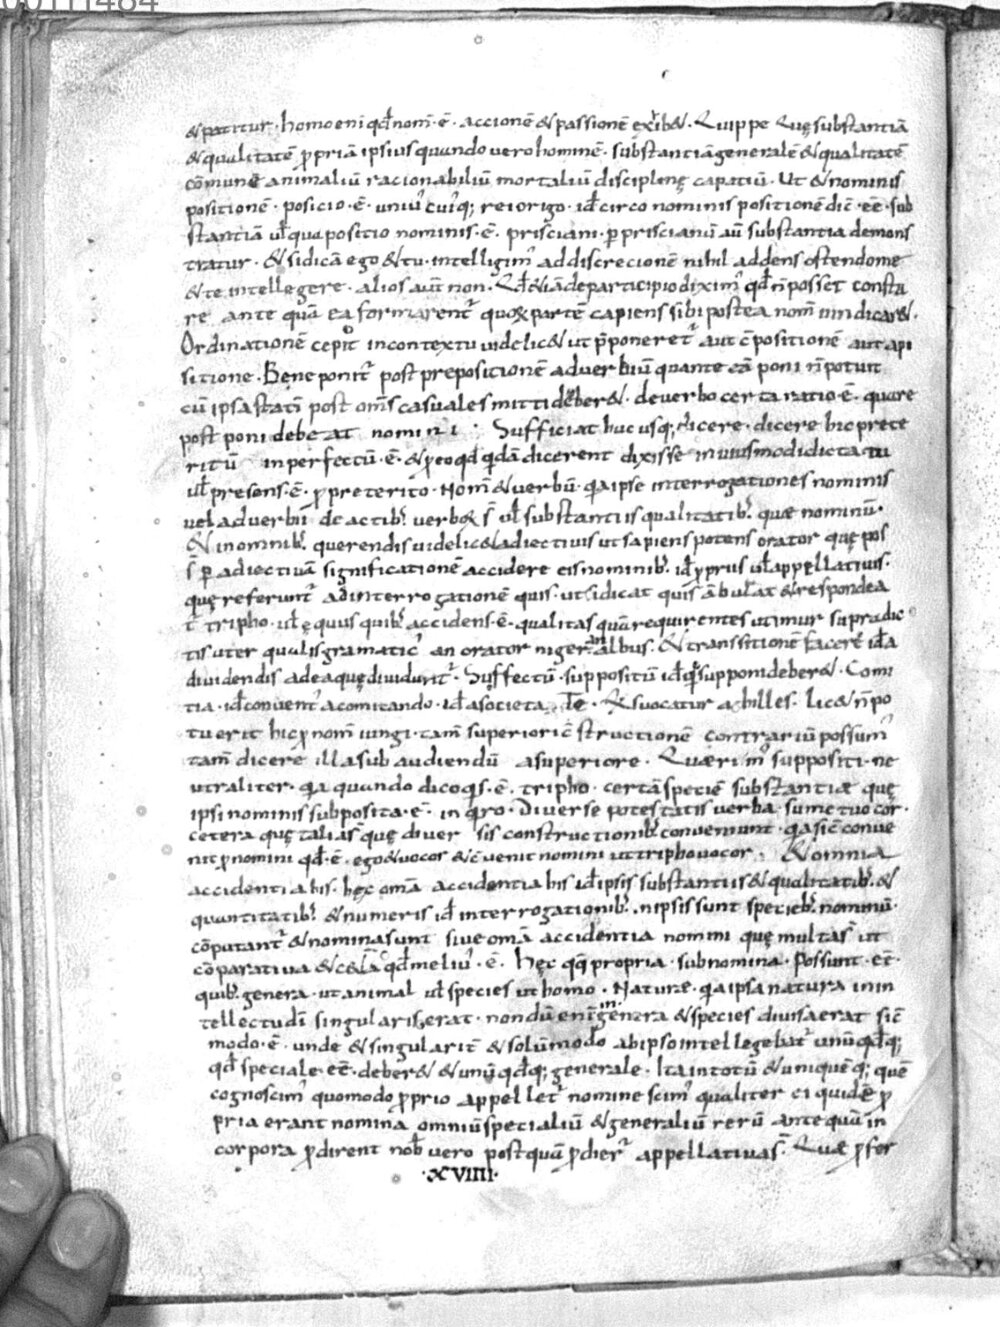 00111484
& patitur · homo eni qđ nom̄ · ē · accionē & passionē exib& · Quippe Quę substantiā
& qualitatē ꝓpriā ipsius quando vero hominē · substantiā generalē & qualitatē
cōmunē animaliū racionabiliū mortaliū disciplinę capatiū · Ut & nominis
positionē · posicio · ē · uniu' cui'q; rei origo · iđ circo nominis positionē dic̄ · eē · sub
stantiā ul̄ qua positio nominis · ē · prisciani · ꝑ priscianū aū substantia demons
tratur · & si dicā ego & tu · intelligim' ad discrecionē nihil addens ostendo me
& te intellegere · alios aūt non · Qđ & iā de participio dixim' qđ n̄ posset consta
re ante quā ea formarent' quoꝝ partē capiens sibi postea nom̄ uindicar& ·
Ordinationē cepit in contextu uidelic& ut p̄poneret' aut c̄positionē aut api
sitione · Bene ponit' post prepositionē aduerbiū quante eā poni n̄ potuit
cū ipsa statī post om̄s casuales mitti deber& · de uerbo certa ratio · ē · quare
post poni debeat nomini · Sufficiat huc usq; dicere · dicere hic prete
ritū inperfectū · ē · & ꝓeo qđ qdā dicerent dixisse in uiusmodi dictatu
ul̄ presens · ē · ꝓ preterito · Nom̄ & uerbū · qa ipse interrogationes nominis
vel aduerbii de actib; uerboꝝ s̄ ul̄ substantiis qualitatib; quæ nominū ·
& in omnib; querendis uidelic& adiectiuis ut sapiens potens orator quę pos
s̄ ꝑ adiectiuā significationē accidere eis nominib; iđ ꝓpriis ul̄ appellatiuis ·
quę referunt' ad interrogationē quis · ut si dicat quis ābulat & respondea
t' tripho · ul̄ equus quib; accidens · ē · qualitas quā requirentes utimur supradic
tis uter qualis gramatic' an orator niger an albus · & transsitionē facere iđ a
diuidendis ad ea quę diuidunt' · Suffectū · suppositū iđ q suppoui deber& · Comi
tia · iđ conuent' a comitando · iđ a societate · Et suocatur achilles · lic& n̄ po
tuerit hic ꝓ nom̄ iungi · tam̄ superiori c̄structionē contrariū possum'
tam̄ dicere illa subaudiendū a superiore · Quærim' suppositi · ne
utraliter · qa quando dico qs · ē · tripho · certā speciē substantiæ quę
ipsi nominis subposita · ē · in qro · Diuerse potestatis uerba · sume tuo cor ·
cetera quę talia s̄ quę diuer sis constructionib; conueniunt · qa sic̄ conue
nit ꝓnomini qđ · ē · ego & uocor & c̄uenit nomini ut tripho uocor · & omnia
accidentia his · hęc om̄a accidentia his iđ ipsis substantiis & qualitatib; &
quantitatib; & numeris iđ interrogationib; · nipsis sunt specieb; nominū ·
cōputant' & nomina sunt siue om̄a accidentia nomini quę multa s̄ ut
cōparatiua & cetā qđ meliu' · ē · hęc qq propria · sub nomina · Possunt · eē ·
quib; genera · ut animal ul̄ species ut homo · Naturæ · qa ipsa natura in in
tellectu dī singularis erat · nondū eni in genera & species diuisa erat sic̄
modo · ē · unde & singularit̄ & solūmodo ab ipso intellegebat' unū qđq;
qđ speciale · eē · deber& & unū qđq; generale · Ita in totū & uniquēq; quē
cognoscim' quomodo ꝓprio appellet' nomine scim' qualiter ei quidē ꝓ
pria erant nomina omniū specialiū & generaliū rerū ante quā in
corpora ꝓdirent nob; uero postquā ꝓdier' appellatiua s̄ · Quæ ꝓfer
· XVIIII ·